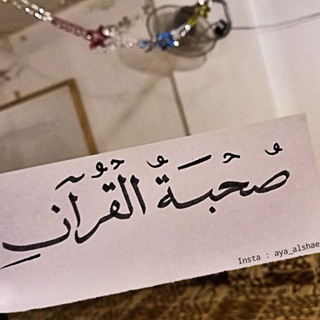 صُحْبَةُ الْقُرْآنِ
Insta : aya_alshae